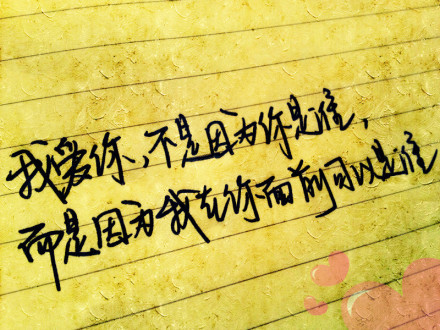 我爱你、不是因为你是谁,
而是因为我在你面前可以是谁